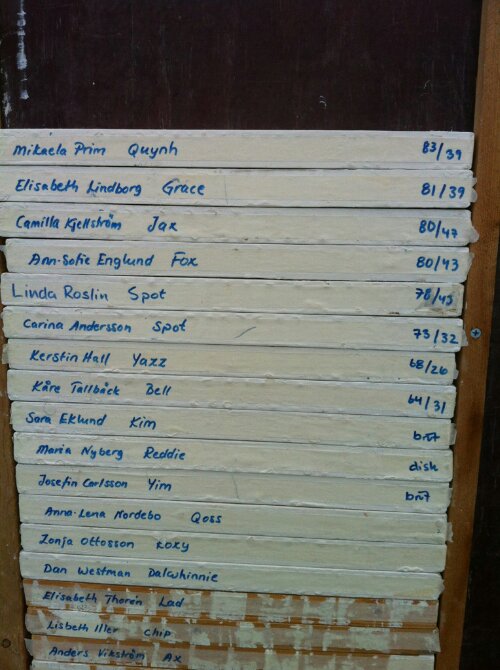 Mikaela Prim Quynh 83/39
Elisabeth Lindborg Grace 81/39
Camilla Kjellström Jax 80/47
Ann-Sofie Englund Fox 80/43
Linda Roslin Spot 78/45
Carina Andersson Spot 73/32
Kerstin Hall Yazz 68/26
Kåre Tallbäck Bell 64/31
Sara Eklund Kim
Maria Nyberg Reddie disk
Josefin Carlsson Yim
Anna-Lena Nordebo Qoss
Zonja Ottosson Roxy
Dan Westman Dalwhinnie
Elisabeth Thorén Lad
Lisbeth Iller Chip
Anders Vikström Ax